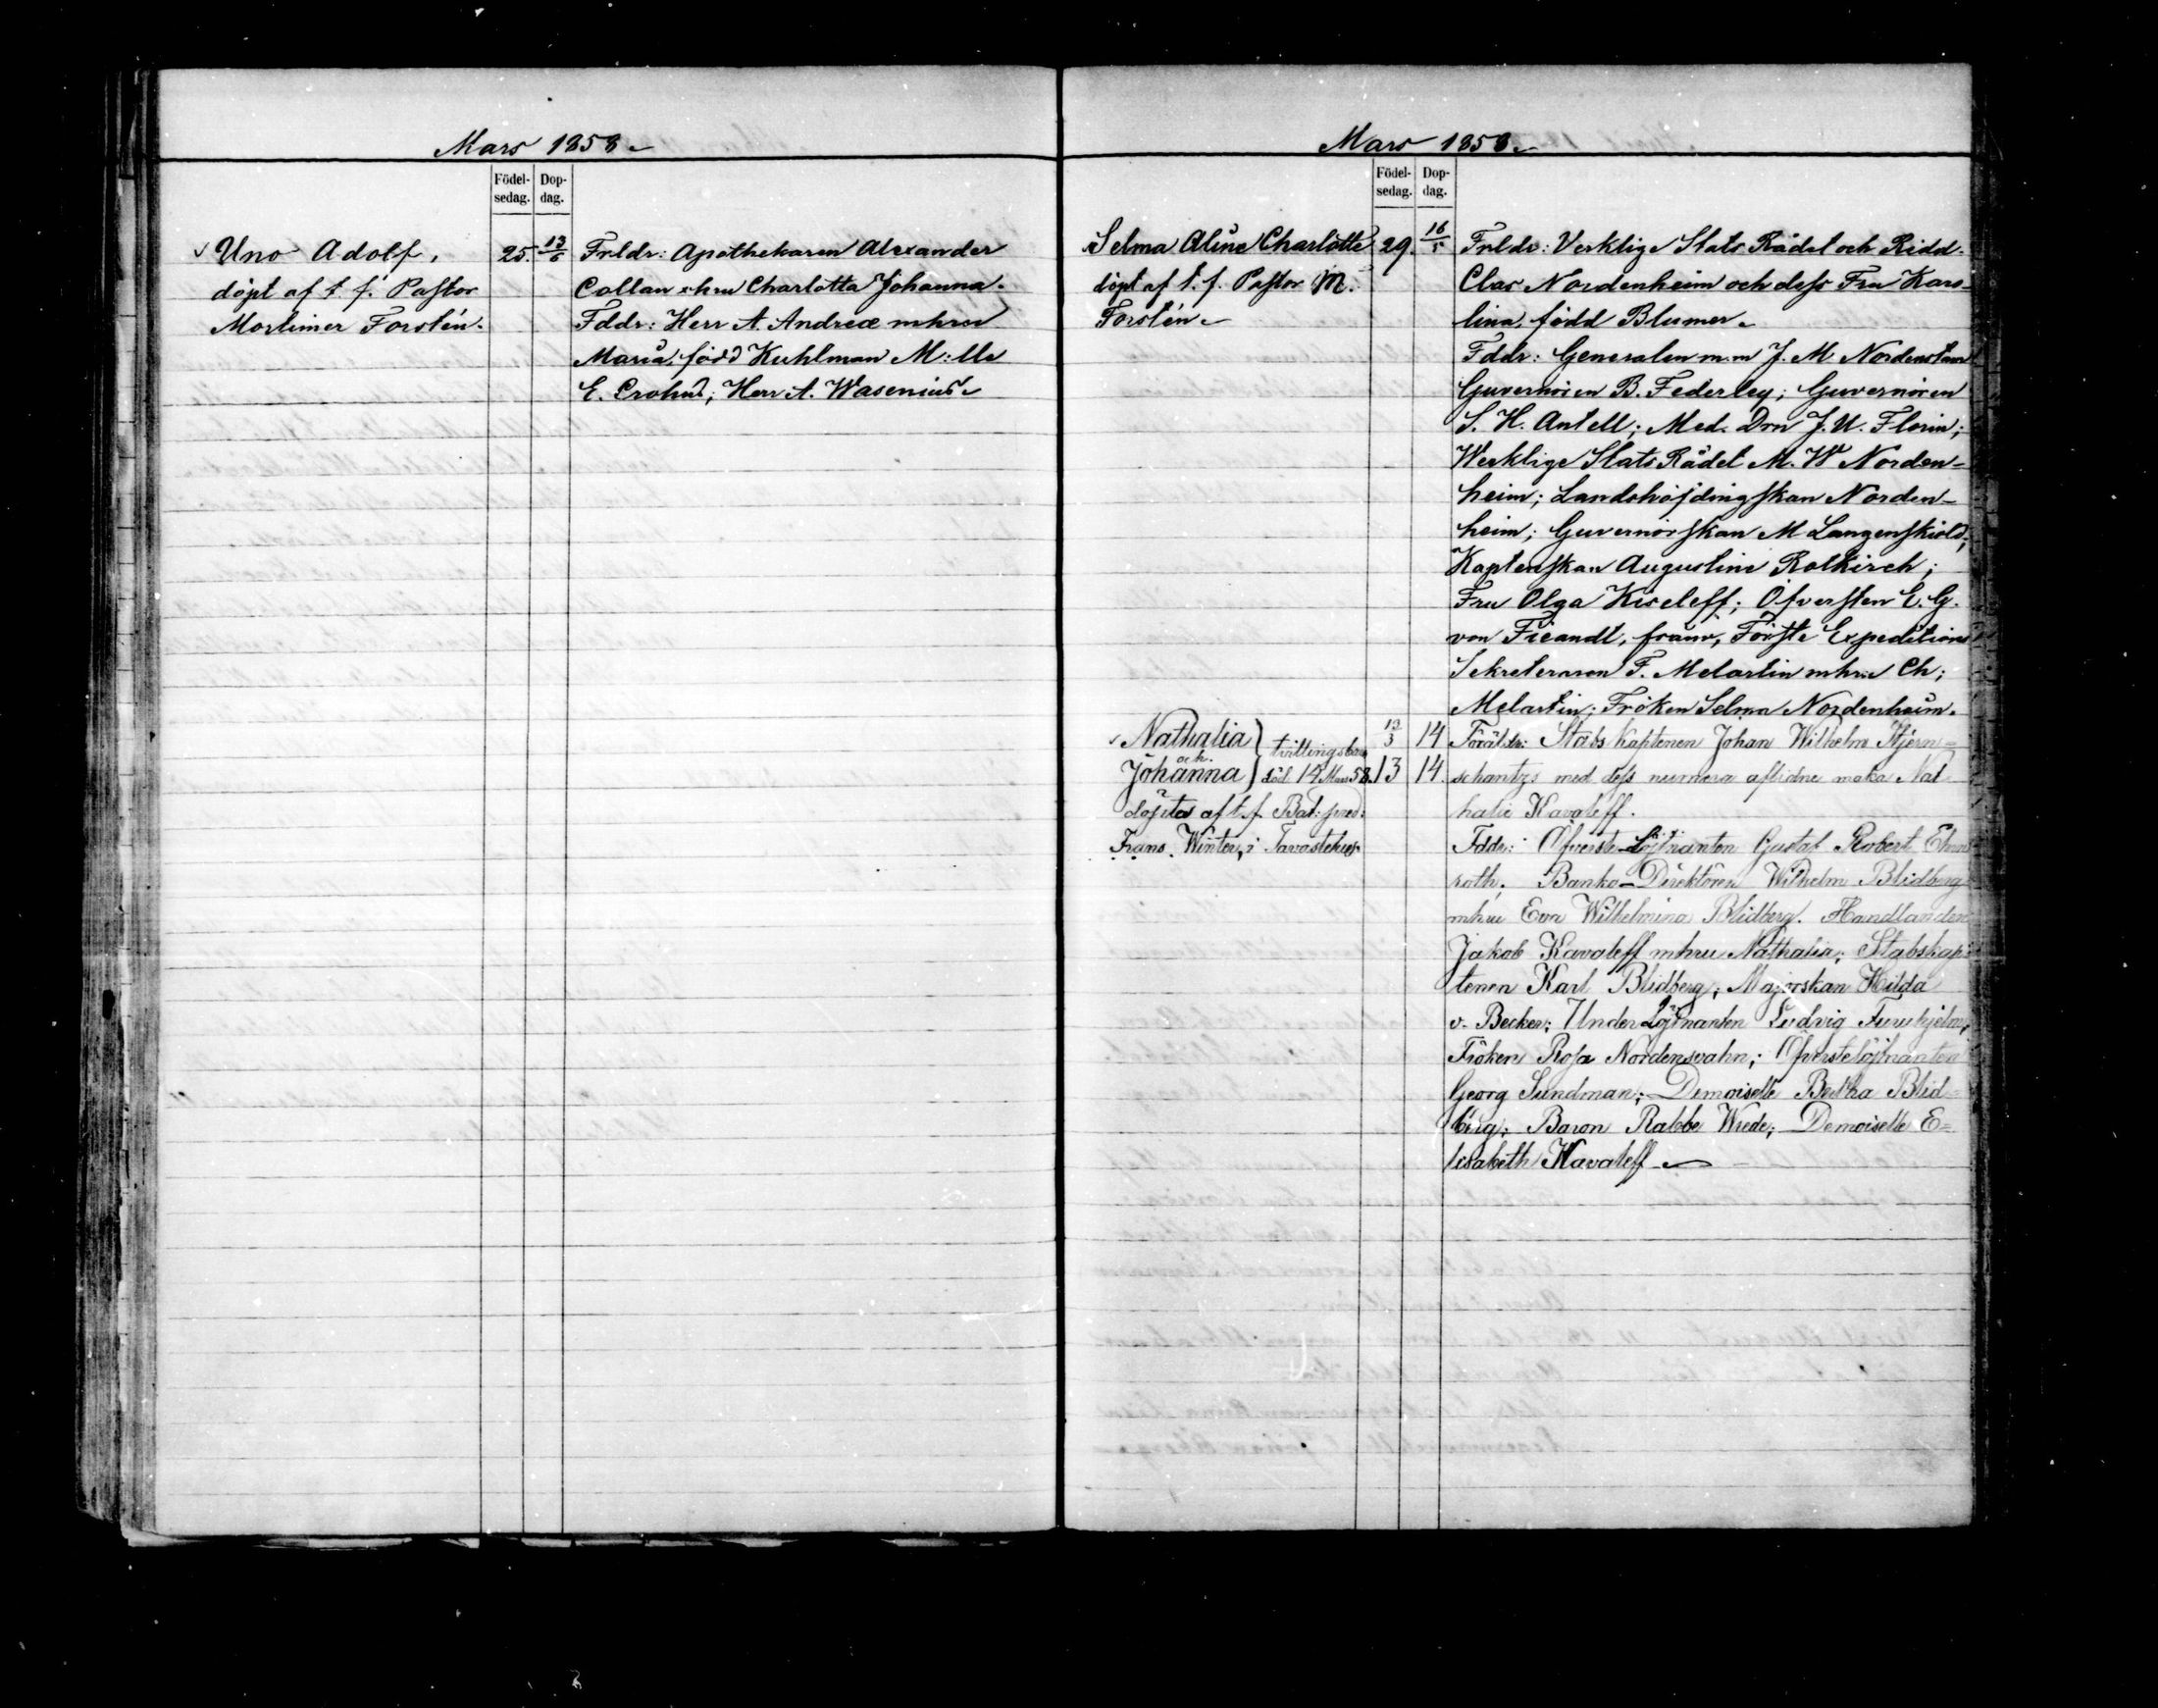 Mars 1858
Födel-
sedag.
Dop-
dag.
Uno Adolf,
döpt af t. f. Pastor
Mortimer Forstén.
25.
13/6
Frldr: Apothekaren Alexander
Collan o hru Charlotta Johanna.
Fddr: Herr A. Andreæ mhru
Maria, född Kuhlman M:lle
E. Crohns; Herr A. Wasenius
Mars 1858
Födel-
sedag.
Dop-
dag.
Selma Aline Charlotte
döpt af t. f. Pastor M.
Forstén
29.
16/5
Frldr: Verklige Stats Rådet och Ridd.
Clas Nordenheim och dess Fru Karo-
lina, född Blumer
Fddr: Generalen m.m J. M. Nordenstam
Guvernören B. Federley; Guvernören
S. H. Antell; Med. Drn J. U. Florin;
Werklige Stats Rådet M. W Norden-
heim; Landshöfdingskan Norden-
heim; Guvernörskan M Langenskiöld;
Kaptenskan Augustine Rotkirch;
Fru Olga Kiseleff; Öfversten E. G.
von Fieandt, Förste Expeditions
Sekreteraren F. Melartin mhru Ch;
Melartin; Fröken Selma Nordenheim.
Nathalia
och
Johanna
tvillingsbarn
föd. 14 Mars 58.
döptes af t.f. Bat: pred:
Frans Winter, i Tavastehus
13/3 14
13 14.
Föräldr: Stabs Kaptenen Johan Wilhelm Stjern=
schantzs med dess numera aflidne maka Nat
halie Kavaleff.
Fddr: Öfverste-Löjtnanten Gustaf Robert Ehrn
roth; Banko-Direktören Wilhelm Blidberg
mhru Eva Wilhelmina Blidberg. Handlanden
Jakob Kavaleff mhru Nathalia; Stabskap
tenen Karl Blidberg; Majorskan Hilda
v. Becker; Under Löjtnanten Ludvig Furuhjelm,
Fröken Rosa Nordensvahn; Öfverstelöjtnanten
Georg Sundman; Demoiselle Bertha Blid=
berg; Baron Rabbe Wrede; Demoiselle E=
lisabeth Kavaleff